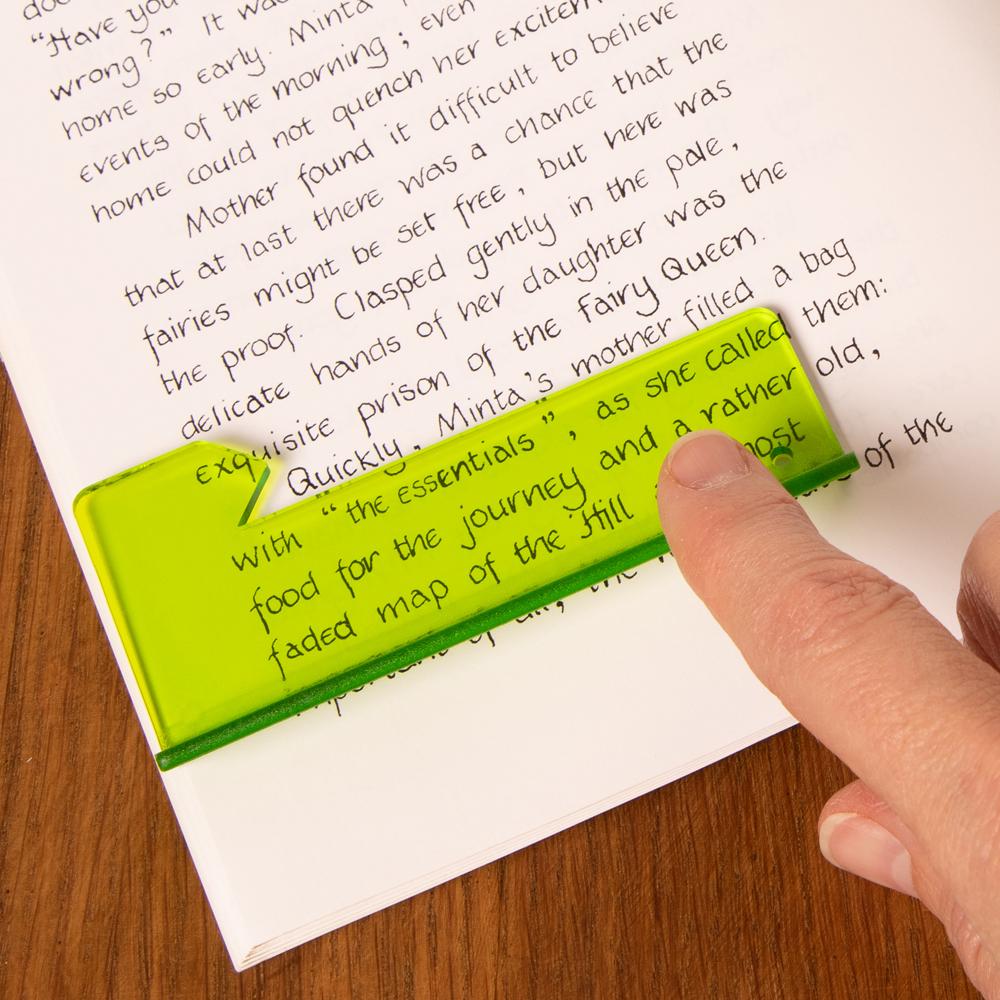 "Have you
wrong?" It was
home so early. Minta
events of the morning; even
home could not quench her excitem
Mother found it difficult to believe
that at last there was a chance that the
fairies might be set free, but here was
the proof. Clasped gently in the pale,
delicate hands of her daughter was the
exquisite prison of the Fairy Queen.
Quickly, Minta's mother filled a bag
with "the essentials", as she called them:
food for the journey and a rather old,
faded map of the Hill most of the
important of all, the